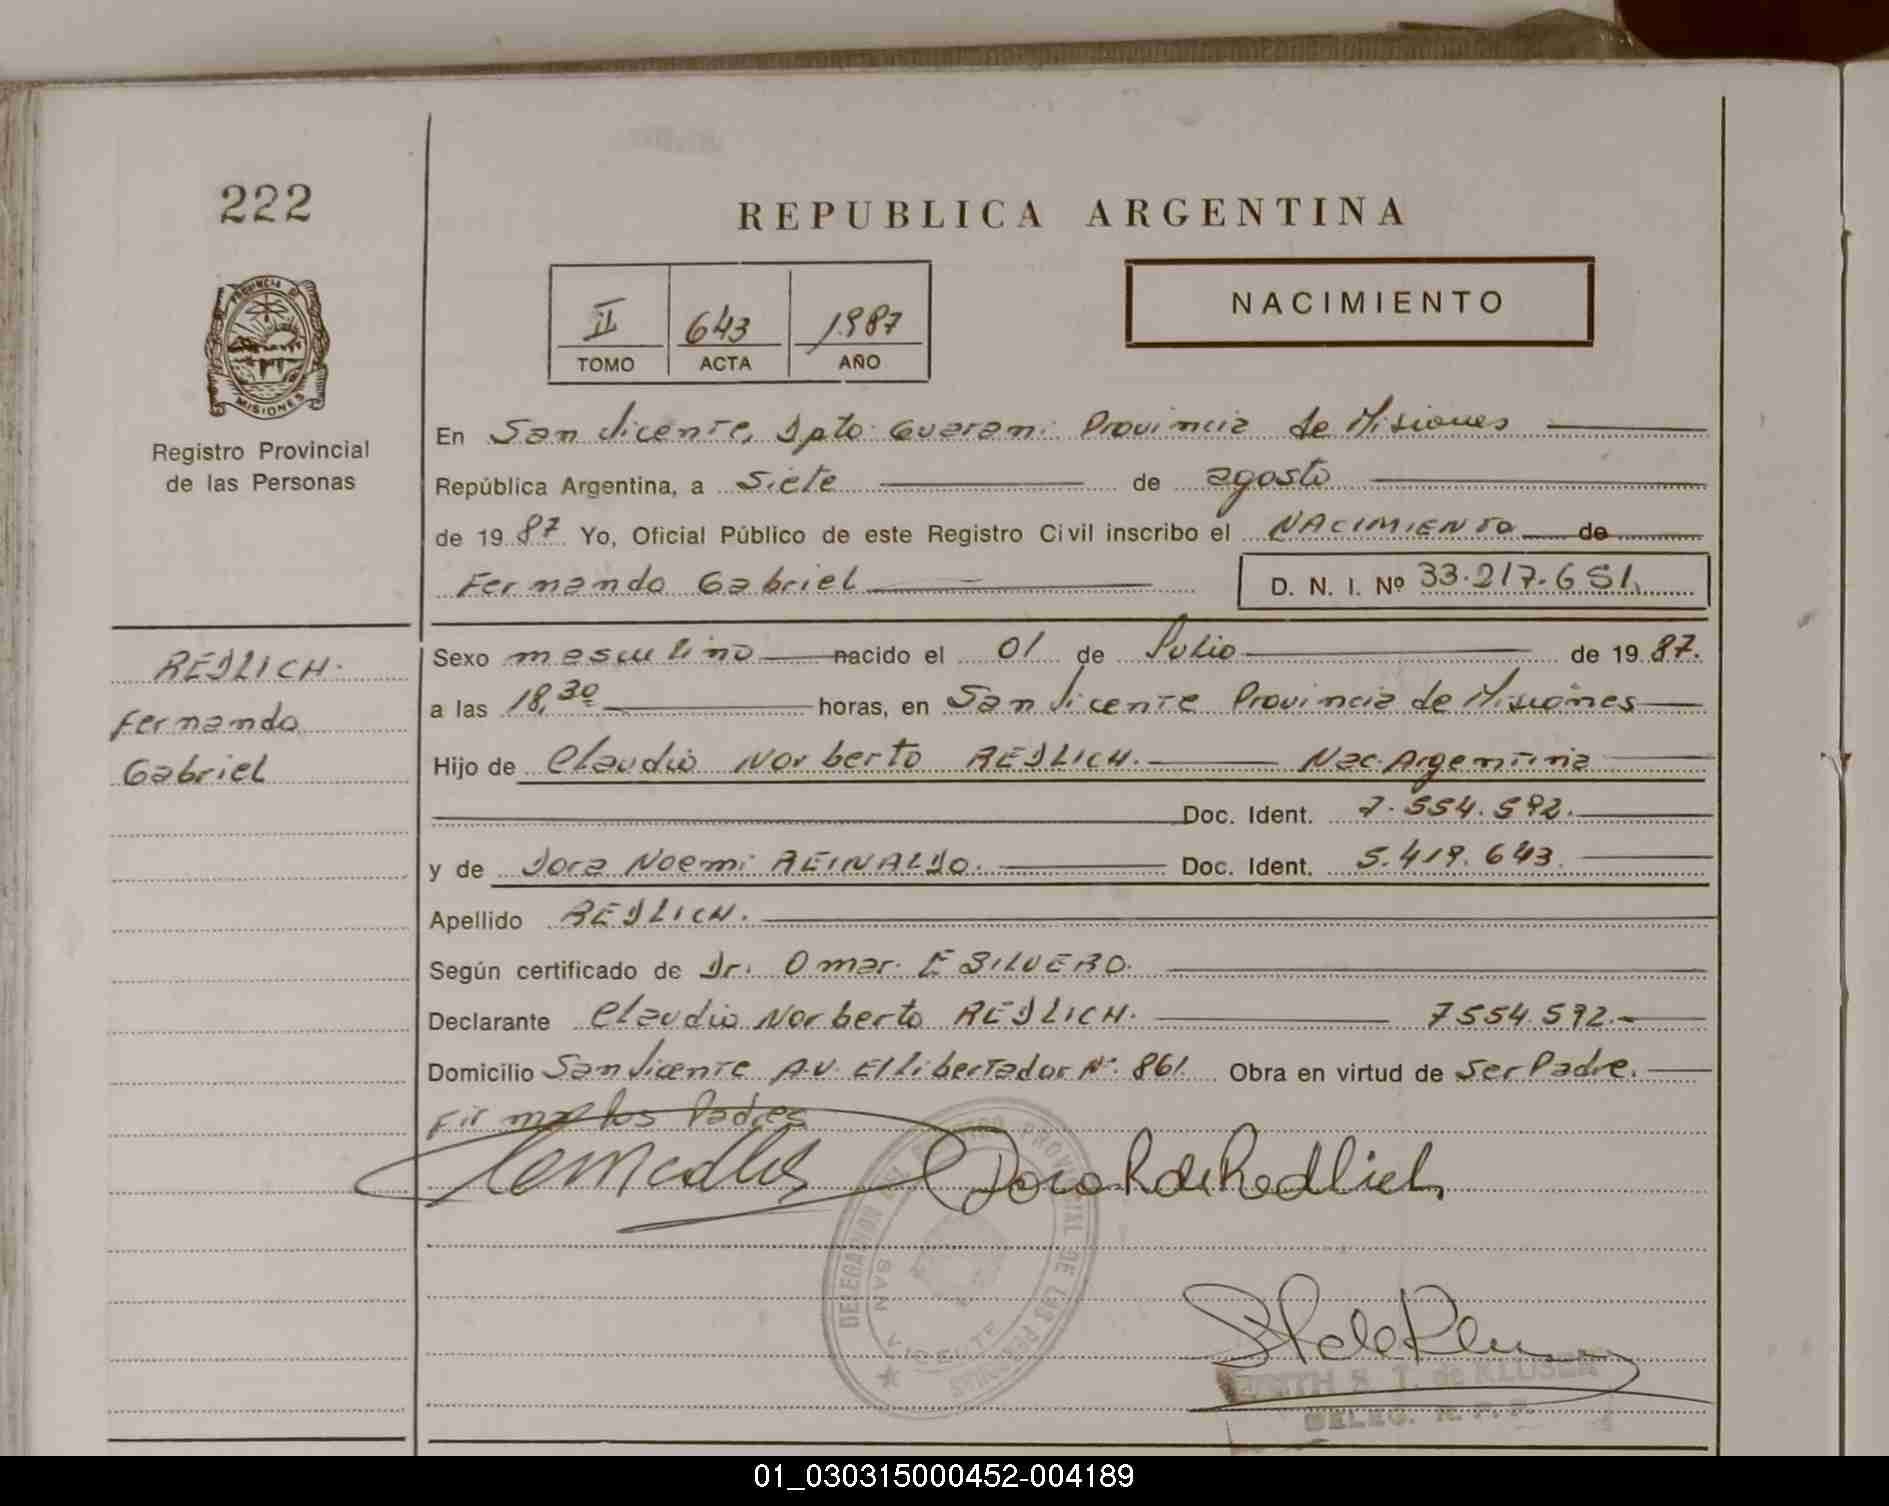 222
REPUBLICA ARGENTINA
PROVINCIA DE
MISIONES
Registro Provincial
de las Personas
II 643 1987
TOMO ACTA AÑO
NACIMIENTO
En San Vicente, Dpto. Guarani Provincia de Misiones
República Argentina, a Siete de agosto
de 1987 Yo, Oficial Público de este Registro Civil inscribo el NACIMIENTO de
Fernando Gabriel D. N. I. Nº 33.217.651
REDLICH.
Fernando
Gabriel
Sexo masculino nacido el 01 de Julio de 1987.
a las 18,30 horas, en San Vicente Provincia de Misiones
Hijo de Claudio Norberto REDLICH. Nac. Argentina
Doc. Ident. 7.554.592.
y de Dora Noemi REINALDO. Doc. Ident. 5.419.643.
Apellido REDLICH.
Según certificado de Dr. Omar E SILVERO.
Declarante Claudio Norberto REDLICH. 7554.592.-
Domicilio San Vicente AV. El libertador Nº 861 Obra en virtud de Ser Padre.
Firman los Padres
Dora R de Redlich
DELEGACION DEL REGISTRO PROVINCIAL DE LAS PERSONAS
SAN VICENTE
S. T. de KLUSER
DELEG. R. P. P.
01_030315000452-004189